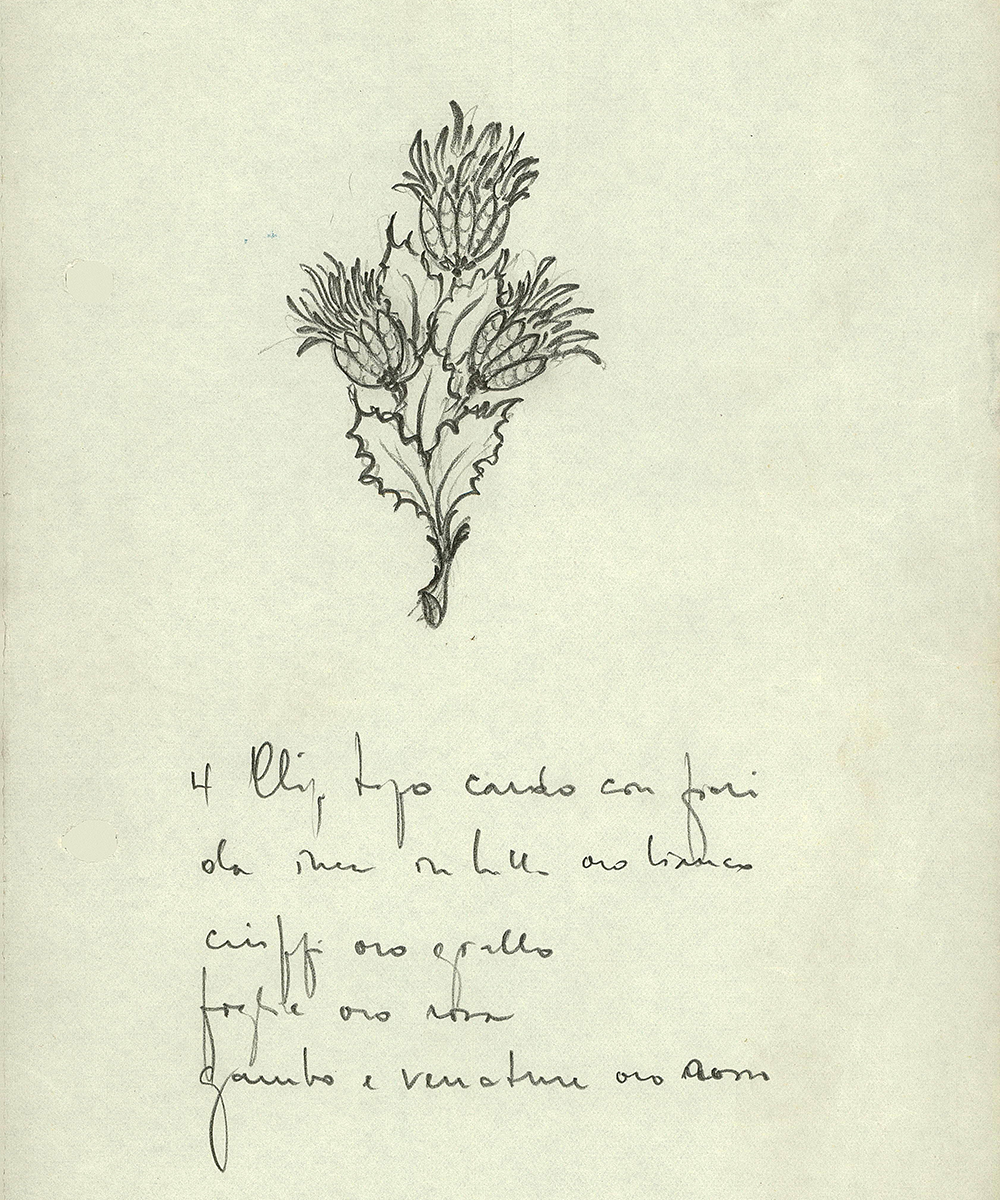 4 Clip tipo cardo con fiori
da in brill. oro bianco
ciuffi oro giallo
foglie oro rosa
gambo e venature oro rosso